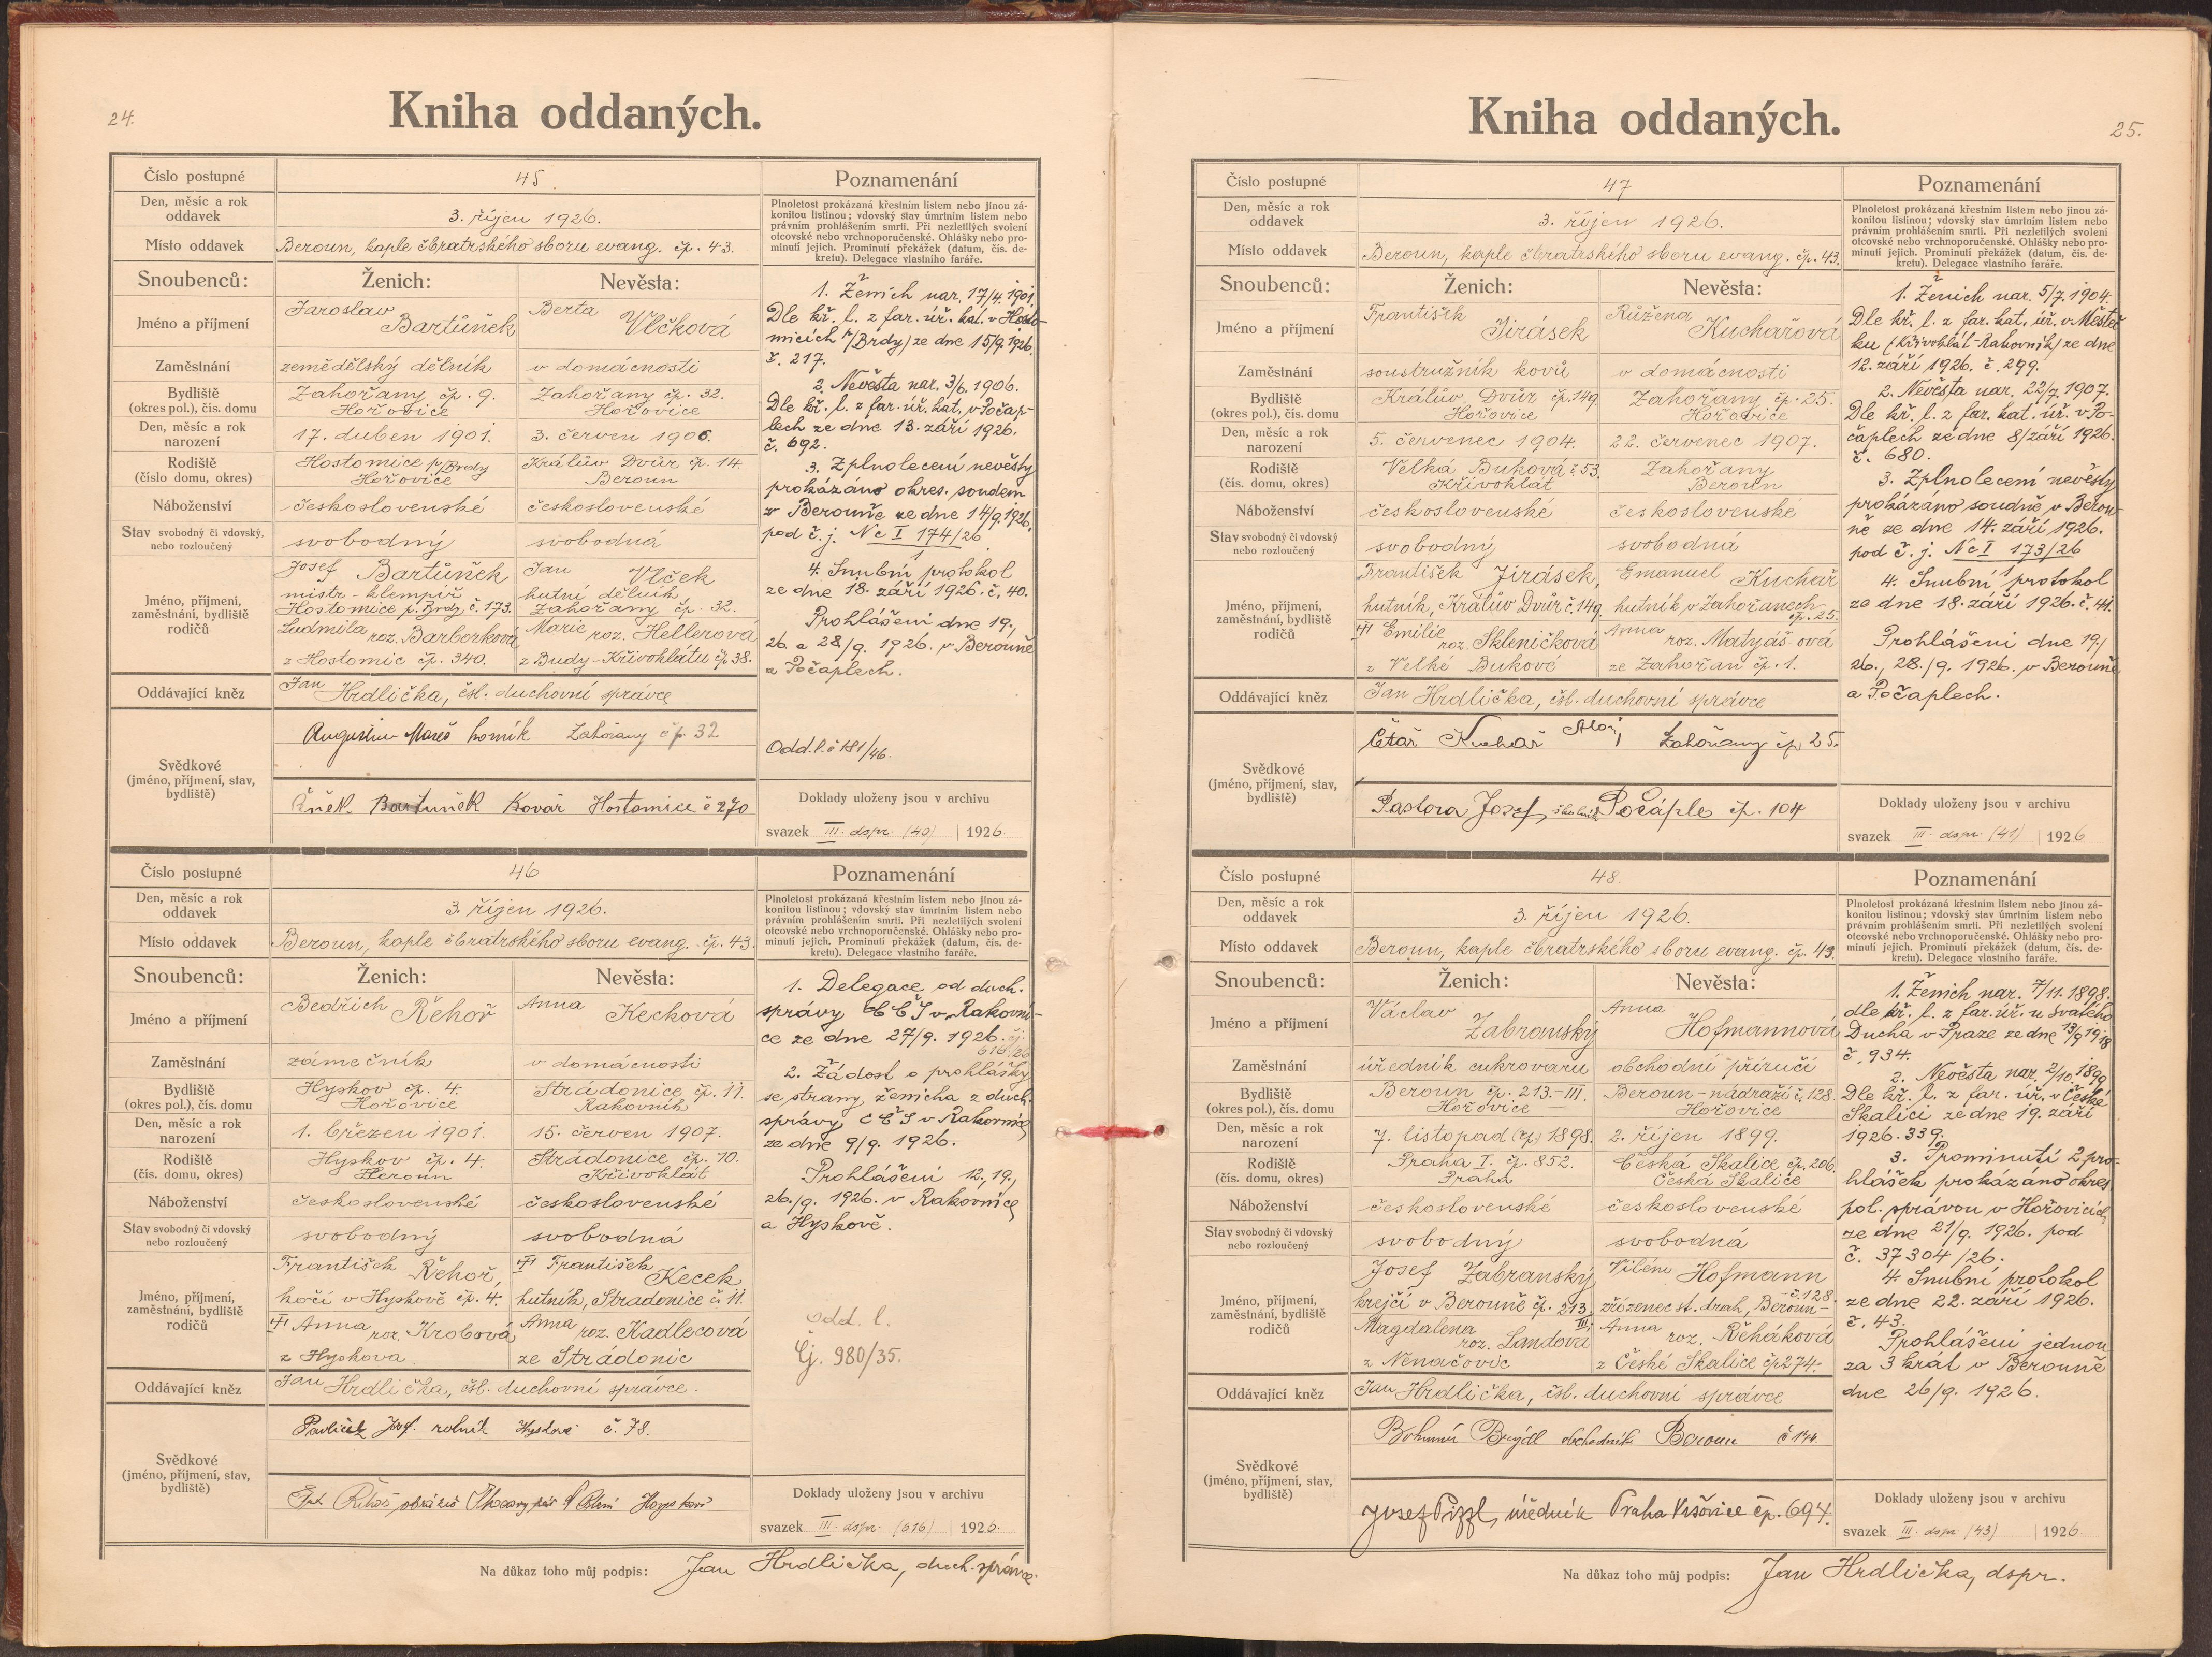 24.
Kniha oddaných.
Číslo postupné 45.
Den, měsíc a rok oddavek 3. říjen 1926.
Místo oddavek Beroun, kaple čbratrského sboru evang. čp. 43.
Snoubenců: Ženich: Nevěsta:
Jméno a příjmení Jaroslav Bartůněk Berta Vlčková
Zaměstnání zemědělský dělník v domácnosti
Bydliště (okres pol.), čís. domu Zahořany čp. 9. Hořovice Zahořany čp. 32. Hořovice
Den, měsíc a rok narození 17. duben 1901. 3. červen 1906.
Rodiště (číslo domu, okres) Hostomice p/Brdy Hořovice Králův Dvůr čp. 14. Beroun
Náboženství československé československé
Stav svobodný či vdovský, nebo rozloučený svobodný svobodná
Jméno, příjmení, zaměstnání, bydliště rodičů
Josef Bartůněk Jan Vlček
mistr-klempíř hutní dělník
Hostomice p. Brdy, č. 173. Zahořany čp. 32.
Ludmila roz. Barborková Marie roz. Hellerová
z Hostomic čp. 340. z Budy-Křivoklátu čp 38.
Oddávající kněz Jan Hrdlička, čsl. duchovní správce
Svědkové (jméno, příjmení, stav, bydliště)
Augustin Mareš horník Zahořany čp. 32
Bartuněk Kovář Hostomice č 270
Poznamenání
Plnoletost prokázaná křestním listem nebo jinou zá-
konitou listinou; vdovský stav úmrtním listem nebo
právním prohlášením smrti. Při nezletilých svolení
otcovské nebo vrchnoporučenské. Ohlášky nebo pro-
minutí jejich. Prominutí překážek (datum, čís. de-
kretu). Delegace vlastního faráře.
1. Ženich nar. 17/4. 1901.
Dle kř. l. z far. úř. kat. v Hosto-
micích p/Brdy) ze dne 15/9. 1926.
č. 217.
2. Nevěsta nar. 3/6. 1906.
Dle kř. l. z far. úř. kat. v Počap-
lech ze dne 13. září 1926.
č. 692.
3. Zplnolecení nevěsty
prokázáno okres. soudem
v Berouně ze dne 14/9. 1926.
pod č. j. Nc I 174/26
1
4. Snubní protokol
ze dne 18. září 1926. č. 40.
Prohlášeni dne 19.,
26. a 28/9. 1926. v Berouně
a Počaplech.
Odd. l. č 181/46.
Doklady uloženy jsou v archivu
svazek III. dspr. (40) 1926.
Číslo postupné 46
Den, měsíc a rok oddavek 3. říjen 1926.
Místo oddavek Beroun, kaple čbratrského sboru evang. čp. 43.
Snoubenců: Ženich: Nevěsta:
Jméno a příjmení Bedřich Řehoř Anna Kecková
Zaměstnání zámečník v domácnosti
Bydliště (okres pol.), čís. domu Hyskov čp. 4. Hořovice Strádonice čp. 11. Rakovník
Den, měsíc a rok narození 1. březen 1901. 15. červen 1907.
Rodiště (čís. domu, okres) Hyskov čp. 4. Beroun Strádonice čp. 70. Křivoklát
Náboženství československé československé
Stav svobodný či vdovský nebo rozloučený svobodný svobodná
Jméno, příjmení, zaměstnání, bydliště rodičů
František Řehoř, František Kecek
kočí v Hyskově čp. 4. hutník, Stradonice č. 11.
Anna roz. Krobová Anna roz. Kadlecová
z Hyskova ze Strádonic
Oddávající kněz Jan Hrdlička, čsl. duchovní správce.
Svědkové (jméno, příjmení, stav, bydliště)
Pavlíček Josef rolník Hyskov č. 78.
Řehoř
Poznamenání
Plnoletost prokázaná křestním listem nebo jinou zá-
konitou listinou; vdovský stav úmrtním listem nebo
právním prohlášením smrti. Při nezletilých svolení
otcovské nebo vrchnoporučenské. Ohlášky nebo pro-
minutí jejich. Prominutí překážek (datum, čís. de-
kretu). Delegace vlastního faráře.
1. Delegace od duch.
správy CČS v Rakovní-
ce ze dne 27/9. 1926. čj.
616/26
2. Žádost o prohlášky
se strany ženicha z duch.
správy CČS v Rakovníce
ze dne 9/9. 1926.
Prohlášeni 12., 19.,
26./9. 1926. v Rakovníce
a Hyskově.
Odd. l.
Čj. 980/35.
Doklady uloženy jsou v archivu
svazek III. dspr. (616) 1926.
Na důkaz toho můj podpis: Jan Hrdlička, duch. správce.
25.
Kniha oddaných.
Číslo postupné 47
Den, měsíc a rok oddavek 3. říjen 1926.
Místo oddavek Beroun, kaple čbratrského sboru evang. čp. 43.
Snoubenců: Ženich: Nevěsta:
Jméno a příjmení František Jirásek Růžena Kuchařová
Zaměstnání soustružník kovů v domácnosti
Bydliště (okres pol.), čís. domu Králův Dvůr čp. 149 Hořovice Zahořany čp. 25. Hořovice
Den, měsíc a rok narození 5. červenec 1904. 22. červenec 1907.
Rodiště (čís. domu, okres) Velká Buková č 53. Křivoklát Zahořany Beroun
Náboženství československé československé
Stav svobodný či vdovský nebo rozloučený svobodný svobodná
Jméno, příjmení, zaměstnání, bydliště rodičů
František Jirásek, Emanuel Kuchař
hutník, Králův Dvůr č. 149. hutník v Zahořanech čp. 25.
Emilie roz. Skleničková Anna roz. Matyáš-ová
z Velké Bukové ze Zahořan čp. 1.
Oddávající kněz Jan Hrdlička, čsl. duchovní správce
Svědkové (jméno, příjmení, stav, bydliště)
Kuchař Zahořany čp 25.
Pastora Josef, Počáple čp. 104
Poznamenání
Plnoletost prokázaná křestním listem nebo jinou zá-
konitou listinou; vdovský stav úmrtním listem nebo
právním prohlášením smrti. Při nezletilých svolení
otcovské nebo vrchnoporučenské. Ohlášky nebo pro-
minutí jejich. Prominutí překážek (datum, čís. de-
kretu). Delegace vlastního faráře.
1. Ženich nar. 5/7. 1904.
Dle kř. l. z far. kat. úř. v Městeč-
ku (Křivoklát-Rakovník) ze dne
12. září 1926. č. 299.
2. Nevěsta nar. 22/7. 1907.
Dle kř. l. z far. kat. úř. v Po-
čaplech ze dne 8/září 1926.
č. 680.
3. Zplnolecení nevěsty
prokázáno soudně v Berou-
ně ze dne 14. září 1926.
pod č. j. Nc I 173/26
1
4. Snubní protokol
ze dne 18. září 1926. č. 41.
Prohlášeni dne 19./
26., 28./9. 1926. v Berouně
a Počaplech.
Doklady uloženy jsou v archivu
svazek III. dspr. (41) 1926
Číslo postupné 48.
Den, měsíc a rok oddavek 3. říjen 1926.
Místo oddavek Beroun, kaple čbratrského sboru evang. čp. 43.
Snoubenců: Ženich: Nevěsta:
Jméno a příjmení Václav Zabranský Anna Hofmannová
Zaměstnání úředník cukrovaru obchodní příručí
Bydliště (okres pol.), čís. domu Beroun čp. 213-III. Hořovice Beroun-nádraží č. 128. Hořovice
Den, měsíc a rok narození 7. listopad (čp.) 1898. 2. říjen 1899.
Rodiště (čís. domu, okres) Praha I. čp. 852. Praha Česká Skalice čp. 206. Česká Skalice
Náboženství československé československé
Stav svobodný či vdovský nebo rozloučený svobodný svobodná
Jméno, příjmení, zaměstnání, bydliště rodičů
Josef Zabranský Vilém Hofmann
krejčí v Berouně čp. 213. III. zřízenec st. drah, Beroun- č. 128.
Magdalena roz. Landová Anna roz. Řeháková
z Nenačovic z České Skalice čp 274.
Oddávající kněz Jan Hrdlička, čsl. duchovní správce
Svědkové (jméno, příjmení, stav, bydliště)
Bohumír Brejdl obchodník Beroun č 144.
Josef Pizzl, úředník Praha Vršovice čp. 694.
Poznamenání
Plnoletost prokázaná křestním listem nebo jinou zá-
konitou listinou; vdovský stav úmrtním listem nebo
právním prohlášením smrti. Při nezletilých svolení
otcovské nebo vrchnoporučenské. Ohlášky nebo pro-
minutí jejich. Prominutí překážek (datum, čís. de-
kretu). Delegace vlastního faráře.
1. Ženich nar. 7/11. 1898.
dle kř. l. z far. úř. u svatého
Ducha v Praze ze dne 13/9 1918
č. 934.
2. Nevěsta nar. 2/10. 1899
Dle kř. l. z far. úř. v České
Skalici ze dne 19. září
1926. 339.
3. Prominutí 2 pro-
hlášek prokázáno okres.
pol. správou v Hořovicích
ze dne 21/9. 1926. pod
č. 37304/26.
4. Snubní protokol
ze dne 22. září 1926.
č. 43.
Prohlášeni jednou
za 3 krát v Berouně
dne 26/9. 1926.
Doklady uloženy jsou v archivu
svazek III. dspr (43) 1926
Na důkaz toho můj podpis: Jan Hrdlička, dspr.